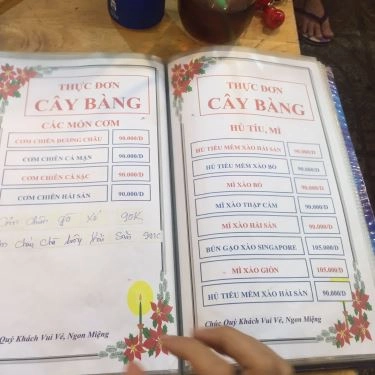 THỰC ĐƠN
CÂY BÀNG
CÁC MÓN CƠM
CƠM CHIÊN DƯƠNG CHÂU 90.000/D
CƠM CHIÊN CÁ MẠN 90.000/D
CƠM CHIÊN CÁ SẶC 90.000/D
CƠM CHIÊN HẢI SẢN 90.000/D
Chiên gà xé 90K
Hải Sản
Quý Khách Vui Vẻ, Ngon Miệng
THỰC ĐƠN
CÂY BÀNG
HỦ TÍU, MÌ
HỦ TIẾU MỀM XÀO HẢI SẢN 90.000/D
HỦ TIẾU MỀM XÀO BÒ 90.000/D
MÌ XÀO BÒ 90.000/D
MÌ XÀO THẬP CẨM 90.000/D
MÌ XÀO HẢI SẢN 90.000/D
BÚN GẠO XÀO SINGAPORE 105.000/D
MÌ XÀO GIÒN 105.000/D
HỦ TIẾU MỀM XÀO HẢI SẢN 90.000/D
Chúc Quý Khách Vui Vẻ, Ngon Miệng